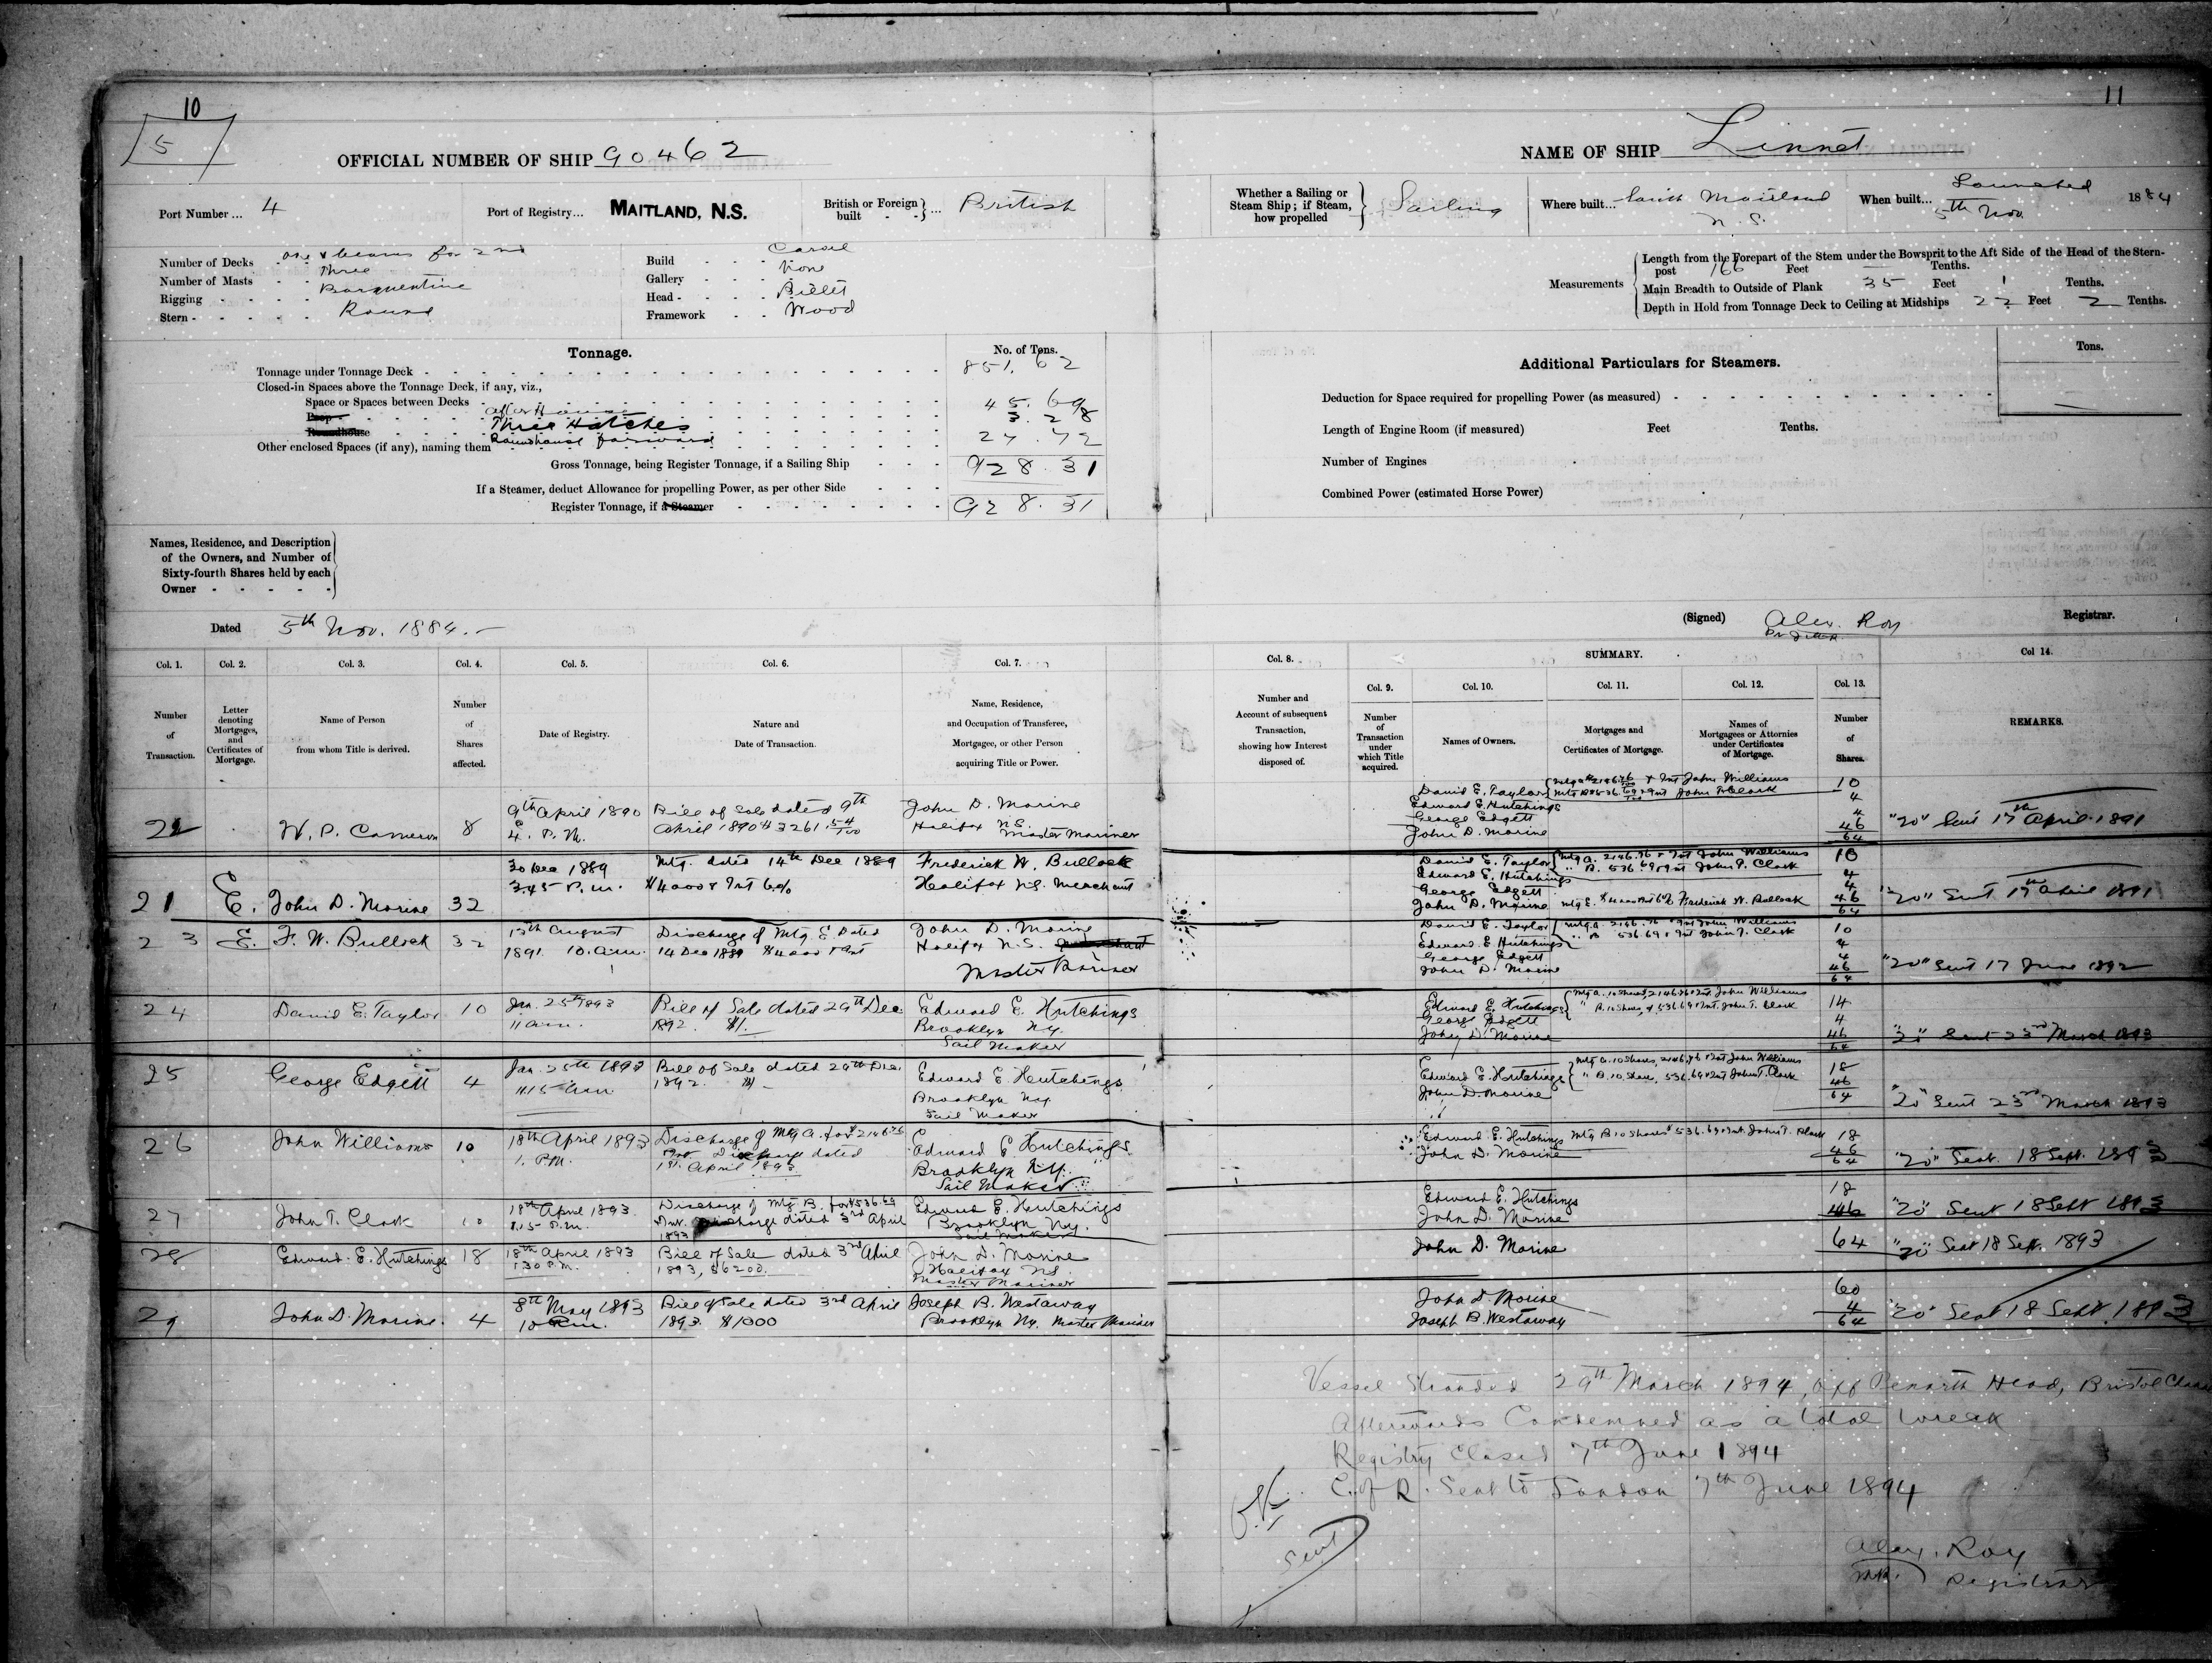 10
11
5
OFFICIAL NUMBER OF SHIP 90462
NAME OF SHIP Linnet
Port Number ... 4
Port of Registry... MAITLAND, N.S.
British or Foreign built - - } ... British
Whether a Sailing or Steam Ship; if Steam, how propelled } Sailing
Where built... South Maitland N.S.
When built... Launched 5th Nov. 1884
Number of Decks - one & beams for 2nd
Number of Masts - Three
Rigging - Barquentine
Stern - Round
Build - - - Carvel
Gallery - - - None
Head - - - Billet
Framework - - Wood
Measurements
Length from the Forepart of the Stem under the Bowsprit to the Aft Side of the Head of the Stern-
post 166 Feet — Tenths.
Main Breadth to Outside of Plank 35 Feet 1 Tenths.
Depth in Hold from Tonnage Deck to Ceiling at Midships 22 Feet 2 Tenths.
Tonnage.
No. of Tons.
Tonnage under Tonnage Deck - 851.62
Closed-in Spaces above the Tonnage Deck, if any, viz.,
Space or Spaces between Decks
Poop - After House 45.69
Roundhouse Three Hatches 3.28
Other enclosed Spaces (if any), naming them Roundhouse forward 27.72
Gross Tonnage, being Register Tonnage, if a Sailing Ship - - - 928.31
If a Steamer, deduct Allowance for propelling Power, as per other Side - - -
Register Tonnage, if a Steamer 928.31
Additional Particulars for Steamers.
Tons.
Deduction for Space required for propelling Power (as measured) —
Length of Engine Room (if measured) Feet Tenths.
Number of Engines
Combined Power (estimated Horse Power)
Names, Residence, and Description
of the Owners, and Number of
Sixty-fourth Shares held by each
Owner - - - - -
Dated 5th Nov. 1884.—
(Signed) Alex. Roy Registrar.
Col. 1. Col. 2. Col. 3. Col. 4. Col. 5. Col. 6. Col. 7.
Col. 8. SUMMARY. Col 14.
Col. 9. Col. 10. Col. 11. Col. 12. Col. 13.
Number of Transaction.
Letter denoting Mortgages, and Certificates of Mortgage.
Name of Person from whom Title is derived.
Number of Shares affected.
Date of Registry.
Nature and Date of Transaction.
Name, Residence, and Occupation of Transferee, Mortgagee, or other Person acquiring Title or Power.
Number and Account of subsequent Transaction, showing how Interest disposed of.
Number of Transaction under which Title acquired.
Names of Owners.
Mortgages and Certificates of Mortgage.
Names of Mortgagees or Attornies under Certificates of Mortgage.
Number of Shares.
REMARKS.
22 W. P. Cameron 8
9th April 1890 4. P.M.
Bill of Sale dated 9th April 1890 $3261.54/100
John D. Morine Halifax N.S. Master Mariner
David E. Taylor { Mtg A $2146.76/100 & Int John Williams 10
Mtg B $536.69/100 & Int John T. Clark
Edward E. Hutchings 4
George Edgett 4
John D. Morine 46
64
"20" Sent 17th April 1891
21 E. John D. Morine 32
30 Dec 1889 3.45 P.m.
Mtg. dated 14th Dec 1889 $4000 & Int 6%
Frederick W. Bullock Halifax N.S. Merchant
David E. Taylor { Mtg A. 2146.76 & Int John Williams 10
" B. 536.69 & Int John T. Clark
Edward E. Hutchings 4
George Edgett 4
John D. Morine Mtg E. $4000 Int 6% Frederick W. Bullock 46
64
"20" Sent 17th April 1891
23 E. F. W. Bullock 32
13th August 1891. 10. a.m.
Discharge of Mtg E. Dated 14 Dec 1889 $4000 & Int
John D. Morine Halifax N.S. Master Mariner
David E. Taylor { Mtg A. 2146.76 & Int John Williams 10
" B 536.69 & Int John T. Clark
Edward E. Hutchings 4
George Edgett 4
John D. Morine 46
64
"20" Sent 17 June 1892
24 David E. Taylor 10
Jan. 25th 1893 11 a.m.
Bill of Sale dated 29th Dec 1892. $1.
Edward E. Hutchings Brooklyn N.Y. Sail Maker
Edward E. Hutchings { Mtg A. 10 Shares, 2146.76 & Int. John Williams 14
" B. 10 Shares, $536.69 & Int. John T. Clark
George Edgett 4
John D. Morine 46
64
"20" Sent 23rd March 1893
25 George Edgett 4
Jan. 25th 1893 11.15 a.m.
Bill of Sale dated 29th Dec 1892. $1 —
Edward E. Hutchings Brooklyn N.Y. Sail Maker
Edward E. Hutchings { Mtg A. 10 Shares, 2146.76 & Int John Williams 18
" B. 10 Share, 536.69 & Int John T. Clark
John D. Morine 46
64
"20" Sent 23rd March 1893
26 John Williams 10
18th April 1893 1. P.M.
Discharge of Mtg A. for $2146.76 & Int Discharge dated 1st. April 1893
Edward E. Hutchings Brooklyn N.Y. Sail Maker
Edward E. Hutchings Mtg B 10 Shares $536.69 & Int. John T. Clark 18
John D. Morine 46
64
"20" Sent. 18 Sept. 1893
27 John T. Clark 10
18th April 1893 1.15 P.m.
Discharge of Mtg B. for $536.69 & Int. Discharge dated 3rd April 1893
Edward E. Hutchings Brooklyn N.Y. Sail Maker
Edward E. Hutchings 18
John D. Morine 46
"20" Sent 18 Sept 1893
28 Edward E. Hutchings 18
18th April 1893 1.30 P.M.
Bill of Sale dated 3rd April 1893, $6200.
John D. Morine Halifax N.S. Master Mariner
John D. Morine 64
"20" Sent 18 Sept. 1893
29 John D. Morine. 4
8th May 1893 10 a.m.
Bill of Sale dated 3rd April 1893. $1000
Joseph B. Westaway Brooklyn N.Y. Master Mariner
John D. Morine 60
Joseph B. Westaway 4
64
"20" Sent 18 Sept. 1893
Vessel Stranded 29th March 1894, off Penarth Head, Bristol
Afterwards Condemned as a total wreck
Registry Closed 7th June 1894
C. of R. Sent to London 7th June 1894
Sent
Alex. Roy
Registrar